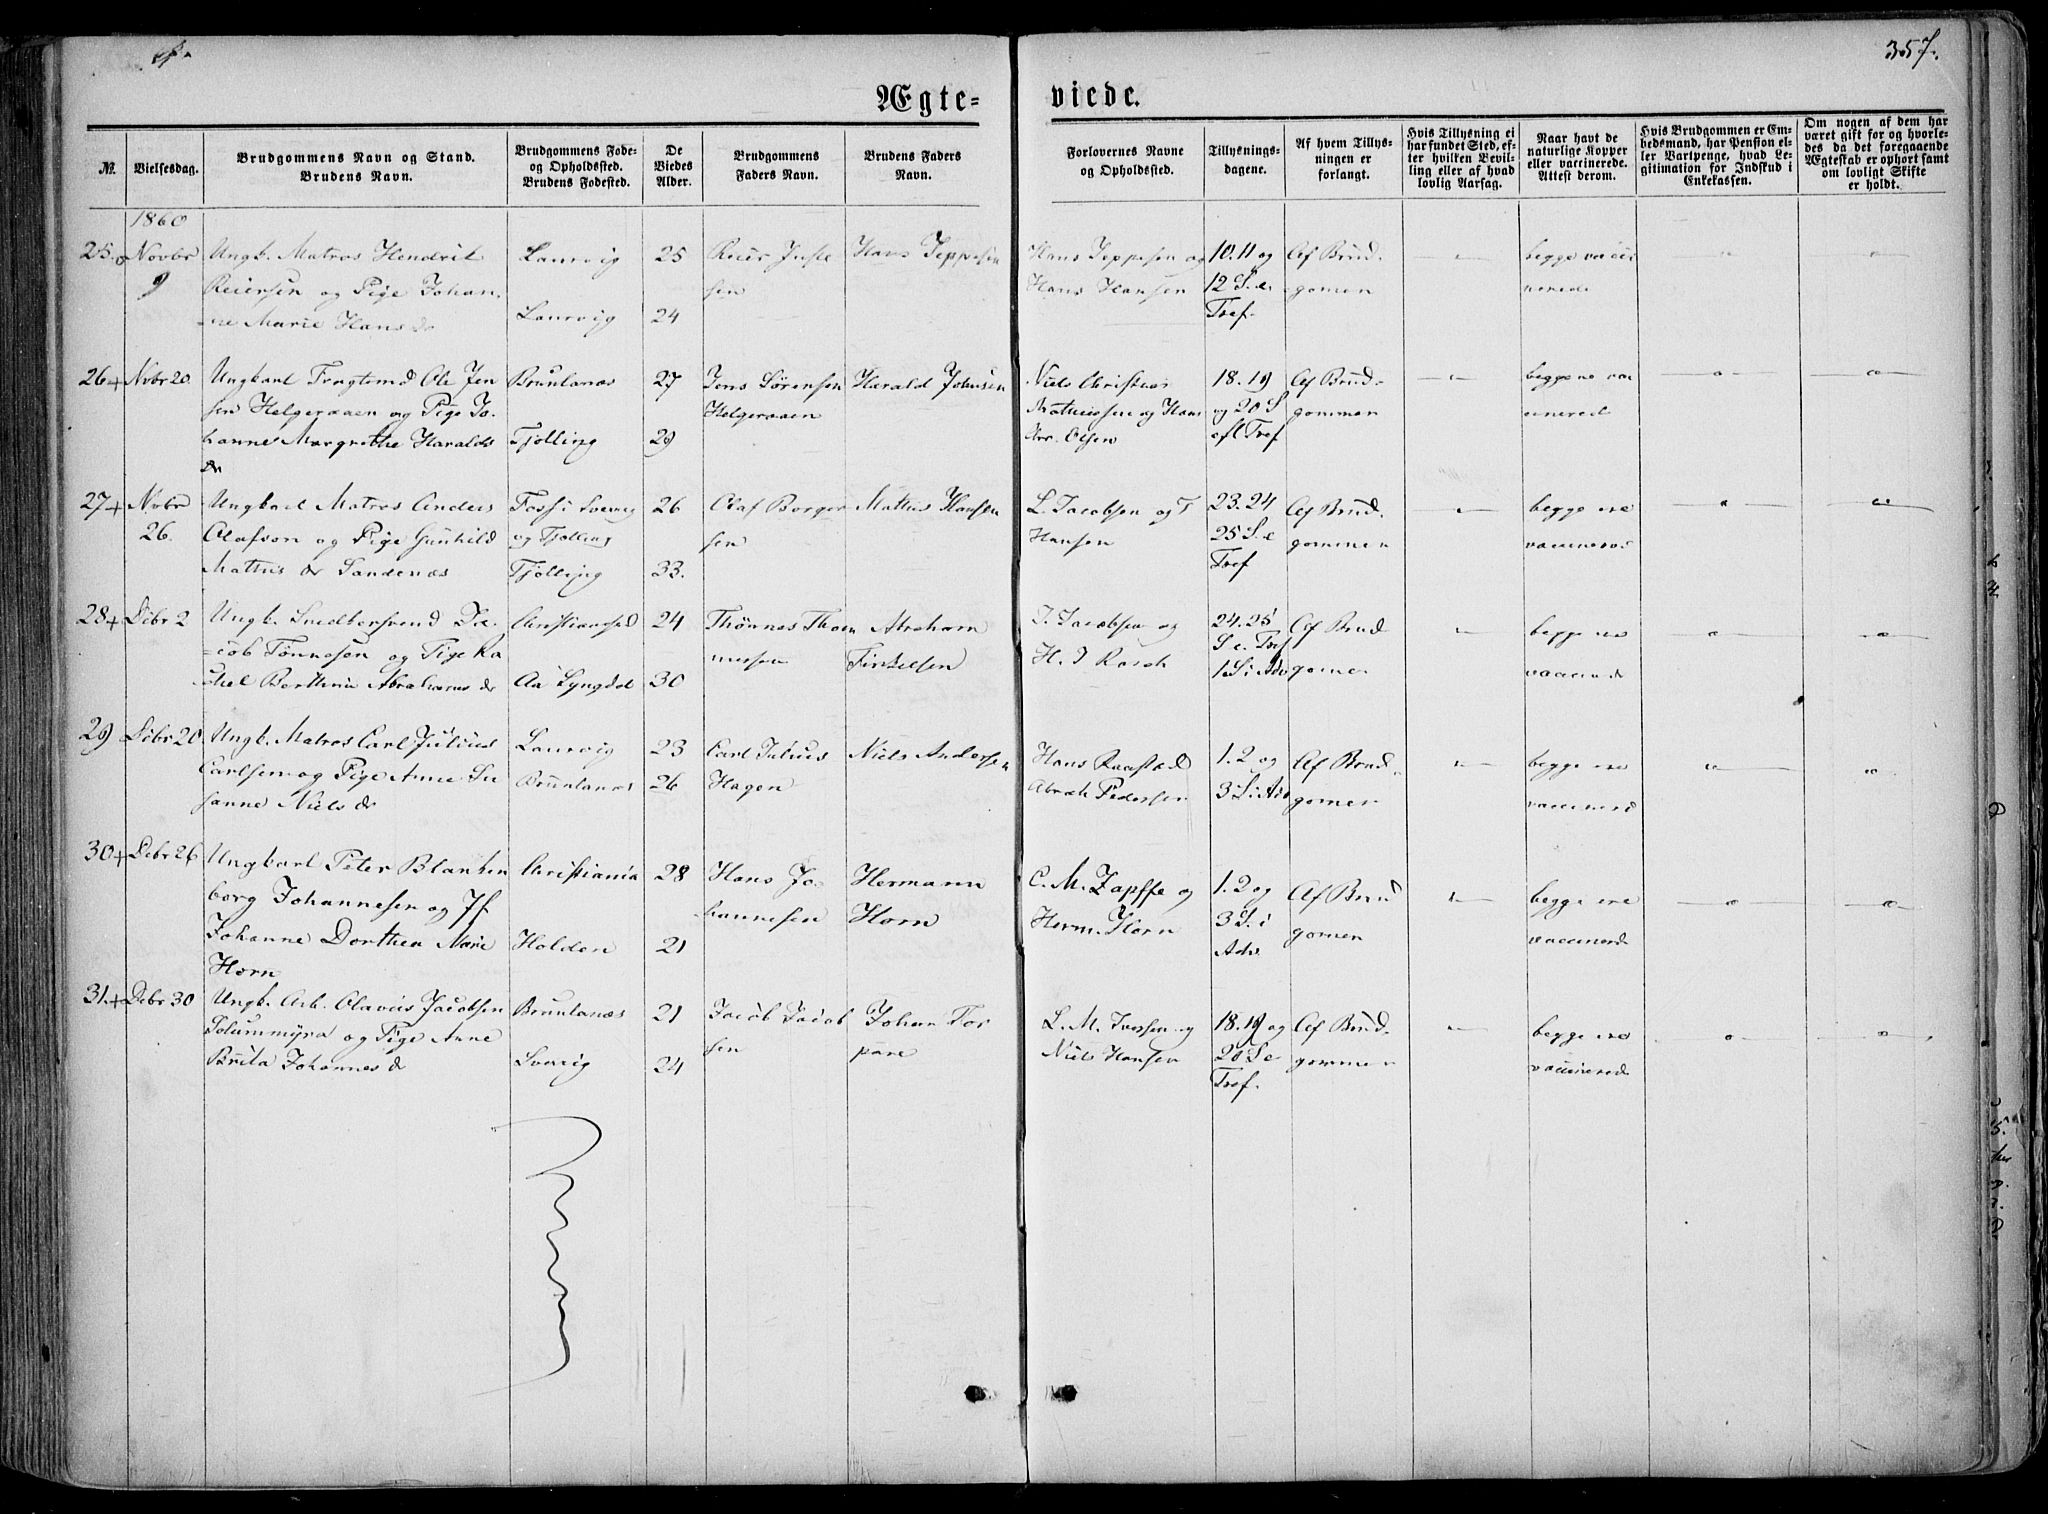 357.
Ægte=
viede.
№.
Vielsesdag.
Brudgommens Navn og Stand.
Brudens Navn.
BrudgommensFøde-
og Opholdssted.
Brudens Fødested.
De
Viedes
Alder.
Brudgommens
Faders Navn.
Brudens Faders
Navn.
Forlovernes Navne
og Opholdssted.
Tillysnings-
dagene.
Af hvem Tillys-
ningen er
forlangt.
Hvis Tillysning ei
har fundet Sted, ef-
ter hvilken Bevil-
ling eller af hvad
lovlig Aarsag.
Naar havt de
naturlige Kopper
eller vaccinerede.
Attest derom.
Hvis Brudgommen er Em-
bedsmand, har Pension el-
ler Vartpenge, hvad Le-
gitimation for Indskud i
Enkekassen.
Om nogen af dem har
været gift før og hvorle-
des da det foregaaende
Ægteskab er ophørt samt
om lovligt Skifte
er holdt.
1860
25. Novbr
9
Ungk. Matros Hendrik
Reiersen og Pige Johan-
ne Marie Hans dr
Laurvig
Laurvig
25
24
Reier Juste
sen
Hans Jeppesen
Hans Jeppesen og
Hans Hansen
10. 11 og
12 S. e.
Tref.
Af Brud-
gomen
begge vacci
nerede
26+ Nvbr 20.
Ungkarl Ole Jen
sen Helgeraaen og Pige Jo-
hanne Margrethe Haralds
dr
Brunlanæs
Tjølling
27
29
Jens Sörensen
Helgeraaen
Harald Johnsen
Niels Christian
Mathiesen og Hans
Olsen
18. 19
og 20 S
efl Tref
Af Brud-
gommen
beggene vac
cinered
27+ Nvbr
26.
Ungkarl Matros Anders
Olafsen og Pige Gunhild
Mattis dr Sandenæs
og Tjølling
Tjølling
26
33.
Olaf Borger
sen
Mattis Hansen
L. Jacobsen og T
Hansen
23. 24
25 S. e
Tref
Af Brud-
gommen
begge ere
vaccinered
28+ Debr 2
Ungk. Smedersvend Ja-
cob Tönnesen og Pige Ra
chel Berthine Abrahams dr
Christianssd
Aa Lyngdal
24
30
Thönnes Thom
messen
Abraham
Tinkelsen
J. Jacobsen og
H. J Rasch
24. 25
S. e. Tref
1 S. i Adv
Af Brud
gomen
begge ere
29 Debr 20.
Ungk. Matros Carl Julius
Carlsen og Pige Anne Su
sanne Niels dr
Laurvig
Brunlanæs
23
26
Carl Julius
Hagen
Niels Andersen
Hans Raastad
Abrah Pedersen
1. 2 og
3 S. i Adv
Af Brud-
gomen
begge ere
vaccinered
30+ Debr 26
Ungkarl Peter Blanken
borg Johannesen og Jf
Johanne Dorthea Marie
Horn
Christiania
Holden
28
21
Hans Jo-
hannesen
Hermann
Horn
C. M. Zapffe og
Herm. Horn
1. 2 og
3 S. i
Adv.
Af Brud
gomen
begge ere
vaccinerede
31.+ Debr 30
Ungk. Arb. Olavus Jacobsen
Solummyra og Pige Anne
Brita Johannes dr
Brunlanæs
Sverrig
21
24
Jacob Jacob
sen
Johan Tor
pare
L. M. Iversen og
Niels Hansen
18. 19 og
20 S. e
Tref.
Af Brud-
gommen
begge ere
vaccinerede